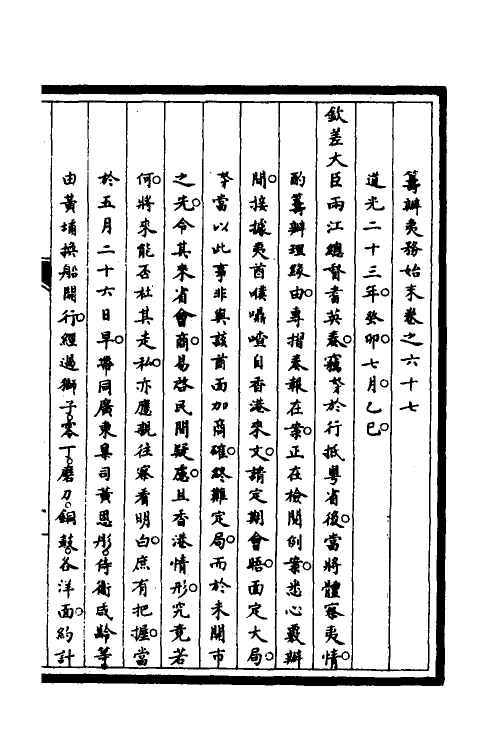 籌辦夷務始末卷之六十七
道光二十三年。癸卯。七月。乙巳。
欽差大臣兩江總督耆英奏。竊奴才於行抵粵省後。當將體察夷情。
酌籌辦理緣由。專摺奏報在案。正在檢閱例案。悉心覈辦
間。接據夷酋噗𡃤喳自香港來文。請定期會晤。面定大局。
奴才當以此事非與該酋面加商確。終難定局。而於未開市
之先。令其來省會商。易啓民間疑慮。且香港情形。究竟若
何。將來能否杜其走私。亦應親往察看明白。庶有把握。當
於五月二十六日早。帶同廣東臬司黃恩彤。侍衛咸齡等。
由黃埔換船開行。經過獅子。零丁。磨刀。銅鼓。各洋面。約計